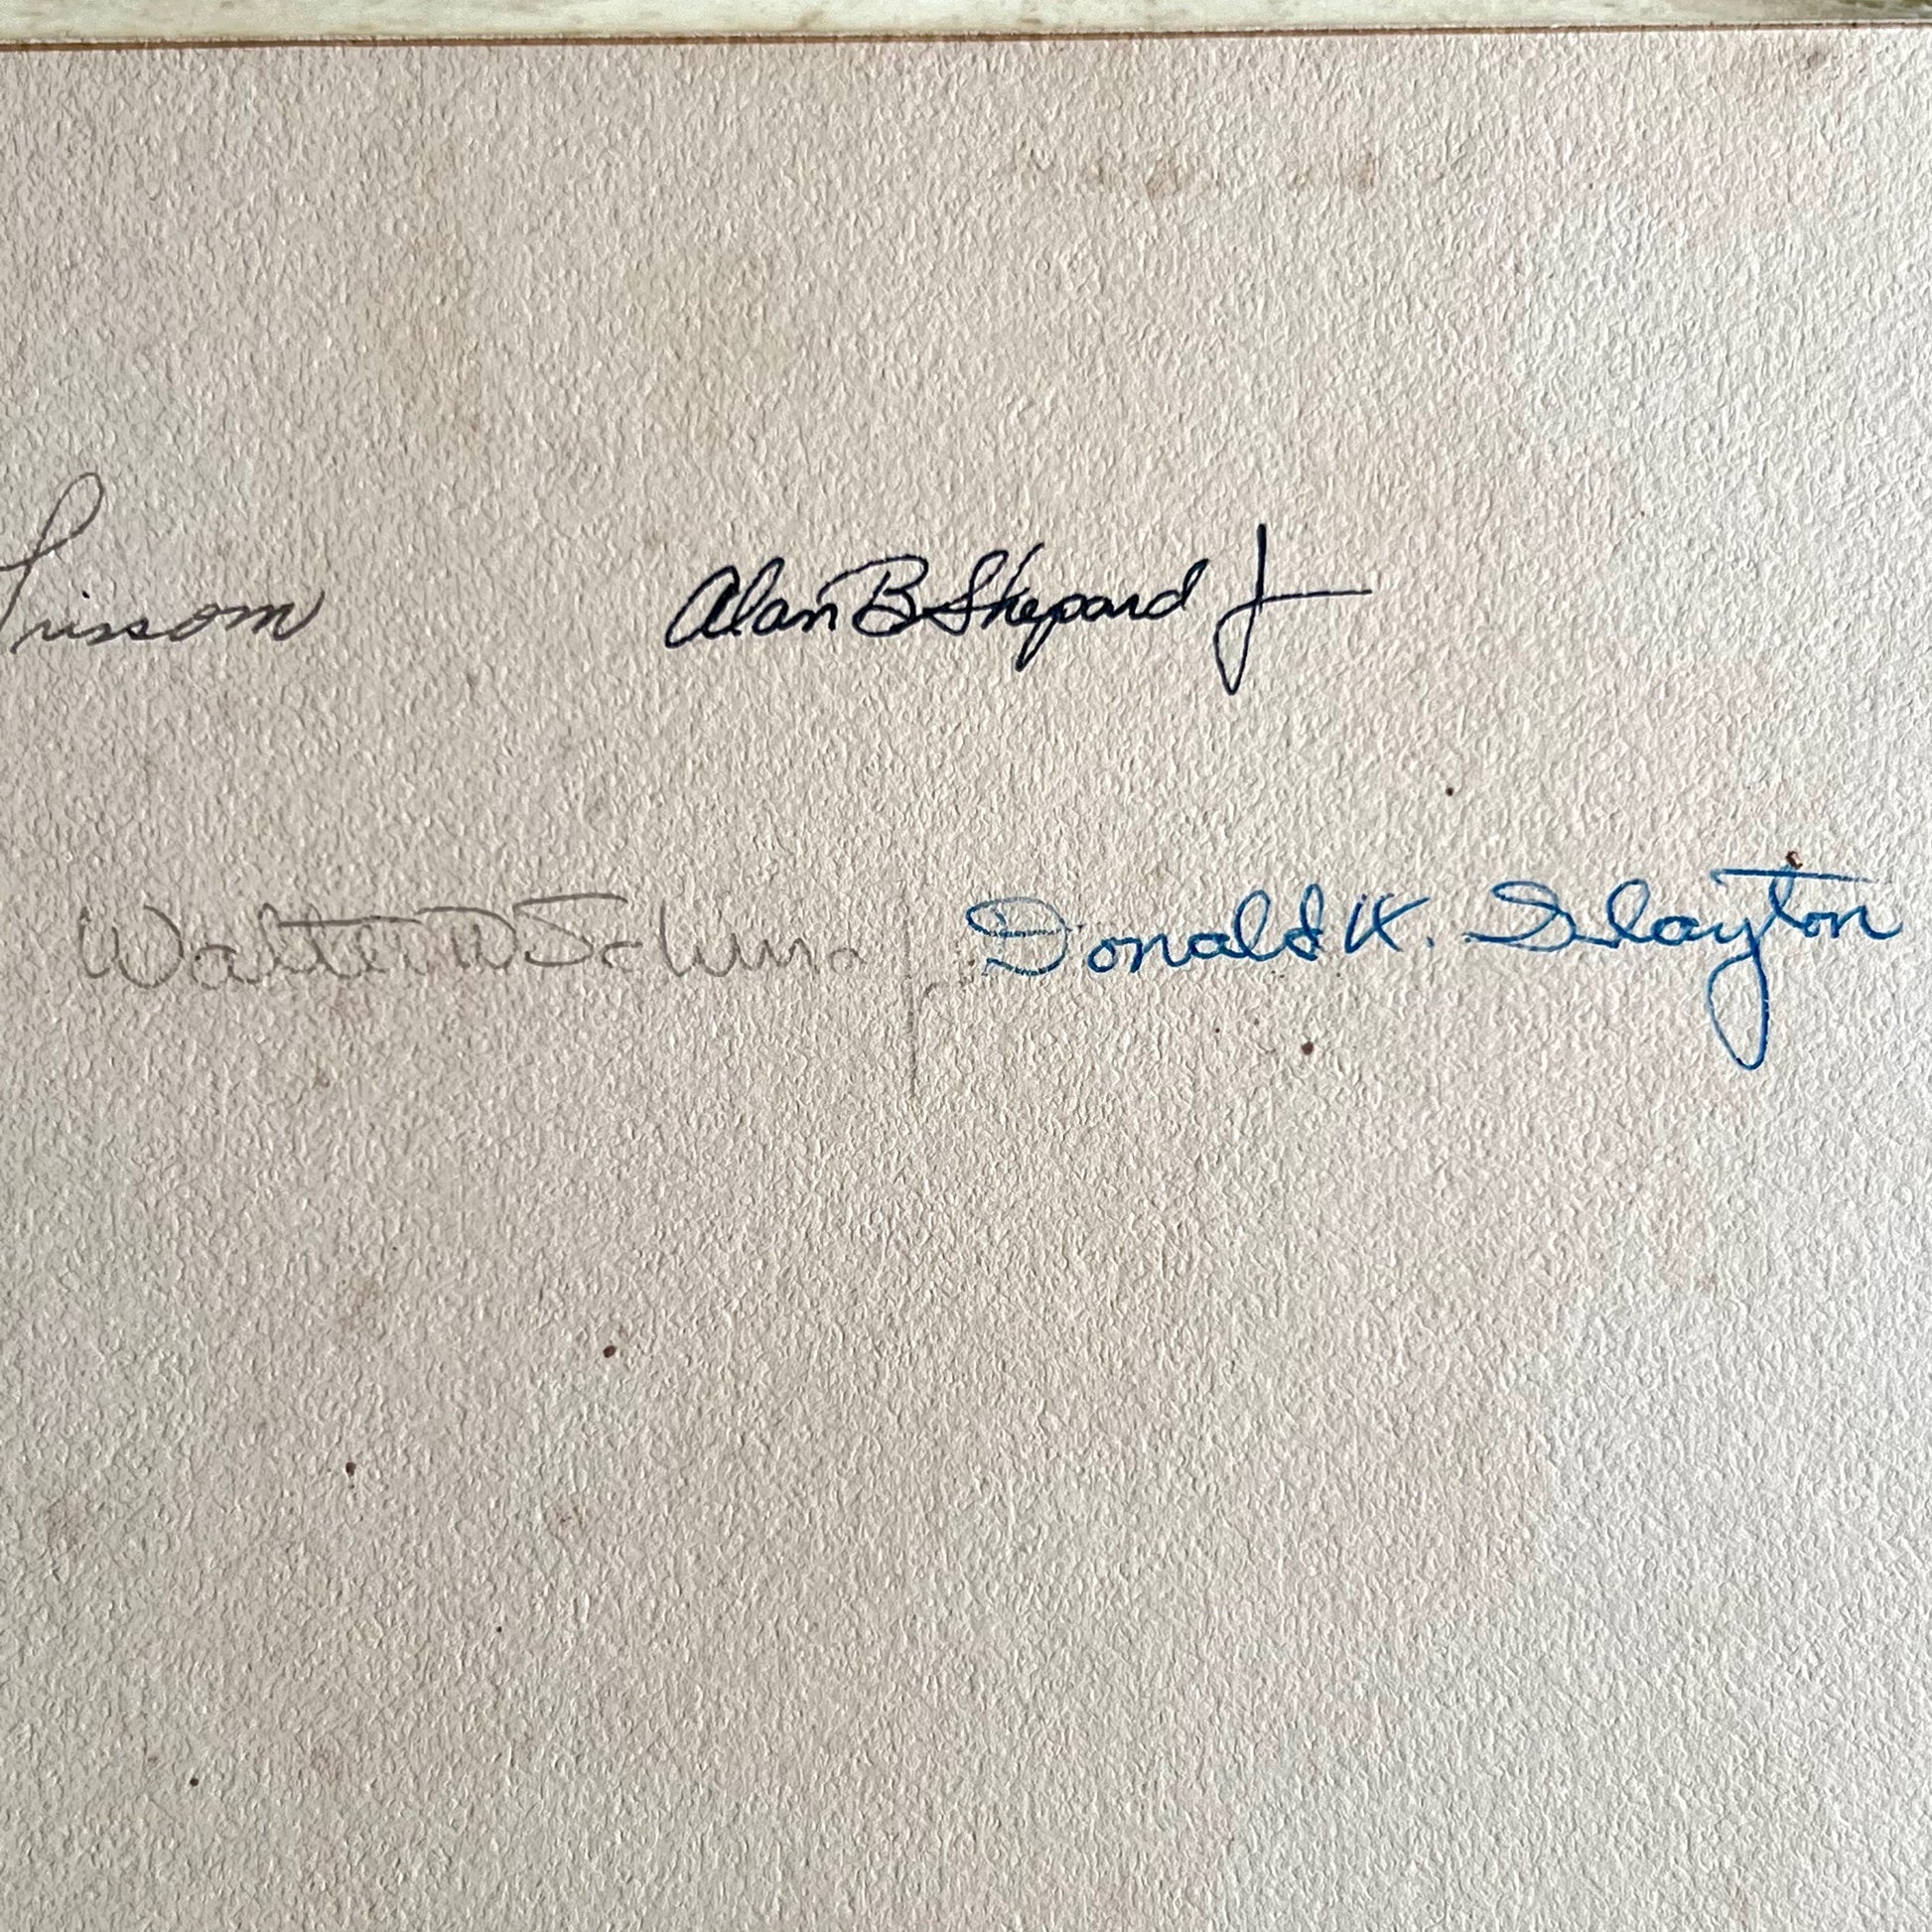 Grissom Alan B Shepard Jr
Walter M Schirra Jr Donald K. Slayton